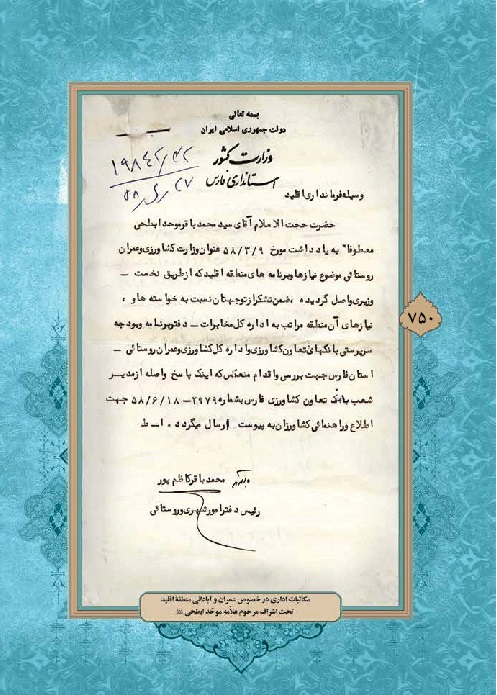 بسمه تعالی
دولت جمهوری اسلامی ایران
وزارت کشور
استانداری فارس
وسیله فرمانداری اقلید
حضرت حجت الاسلام آقای سید محمد باقر موحد ابطحی
معطوفا" به یادداشت مورخ ۵۸/۳/۹ عنوان وزارت کشاورزی و عمران
روستائی موضوع نیازها و برنامه های منطقه اقلید که از طریق نخست ـ
وزیری واصل گردیده بضمن تشکر از توجهتان نسبت به خواسته ها و
نیازهای آن منطقه مراتب به اداره کل مخابرات ـ دفتر برنامه و بودجه
سرپرستی بانکهای تعاون کشاورزی و اداره کل کشاورزی و عمران روستائی ـ
استان فارس جهت بررسی و اقدام منعکس که اینک پاسخ واصله از مدیر
شعب بانک تعاون کشاورزی فارس بشماره ۲۹۷۹ـ ۵۸/۶/۱۸ جهت
اطلاع و راهنمائی کشاورزان به پیوست ارسال میگردد ۰ ا ـ ط
محمد باقر کاظم پور
رئیس دفتر امور شهری و روستائی
۷۵۰
مکاتبات اداری در خصوص عمران و آبادانی منطقۀ اقلید
تحت اشراف مرحوم علامه موحد ابطحی